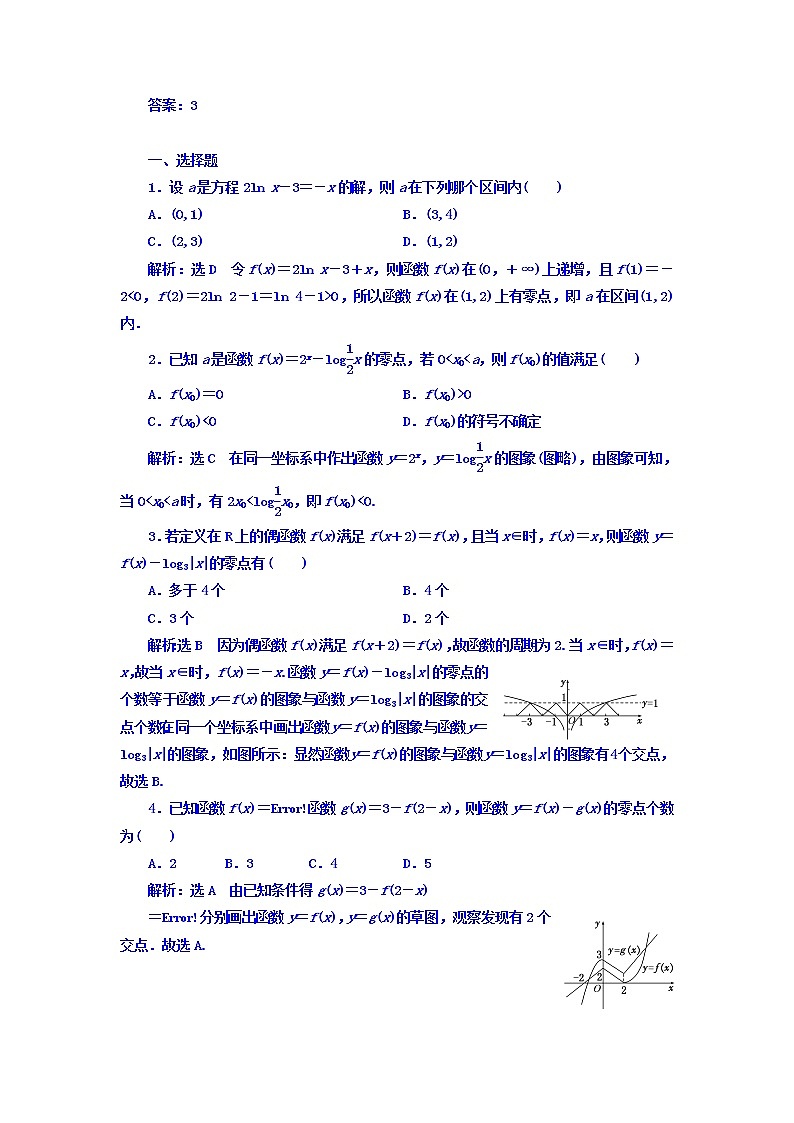 答案：3
一、选择题
1．设 a 是方程 2ln x－3＝－x 的解，则 a 在下列哪个区间内(　　)
A．(0,1)　　B．(3,4)
C．(2,3)　　D．(1,2)
解析：选 D　令 f(x)＝2ln x－3＋x，则函数 f(x)在(0，＋∞)上递增，且 f(1)＝－
2<0，f(2)＝2ln 2－1＝ln 4－1>0，所以函数 f(x)在(1,2)上有零点，即 a 在区间(1,2)
内．
2．已知 a 是函数 f(x)＝2ˣ－log1/2x 的零点，若 0<x₀<a，则 f(x₀)的值满足(　　)
A．f(x₀)＝0　　B．f(x₀)>0
C．f(x₀)<0　　D．f(x₀)的符号不确定
解析：选 C　在同一坐标系中作出函数 y＝2ˣ，y＝log1/2x 的图象(图略)，由图象可知，
当 0<x₀<a 时，有 2x₀<log1/2x₀，即 f(x₀)<0.
3．若定义在 R 上的偶函数 f(x)满足 f(x＋2)＝f(x)，且当 x∈时，f(x)＝x，则函数 y＝
f(x)－log₃|x|的零点有(　　)
A．多于 4 个　　B．4 个
C．3 个　　D．2 个
解析：选 B　因为偶函数 f(x)满足 f(x＋2)＝f(x)，故函数的周期为 2.当 x∈时，f(x)＝
x，故当 x∈时，f(x)＝－x.函数 y＝f(x)－log₃|x|的零点的
个数等于函数 y＝f(x)的图象与函数 y＝log₃|x|的图象的交
点个数．在同一个坐标系中画出函数 y＝f(x)的图象与函数 y＝
log₃|x|的图象，如图所示：显然函数 y＝f(x)的图象与函数 y＝log₃|x|的图象有 4 个交点，
故选 B.
y
1
y=1
－3 －1 O 1 3 x
4．已知函数 f(x)＝Error!函数 g(x)＝3－f(2－x)，则函数 y＝f(x)－g(x)的零点个数
为(　　)
A．2　　B．3　　C．4　　D．5
解析：选 A　由已知条件得 g(x)＝3－f(2－x)
＝Error!分别画出函数 y＝f(x)，y＝g(x)的草图，观察发现有 2 个
交点．故选 A.
y
3
y=g(x)
2
y=f(x)
－2 O 2 x